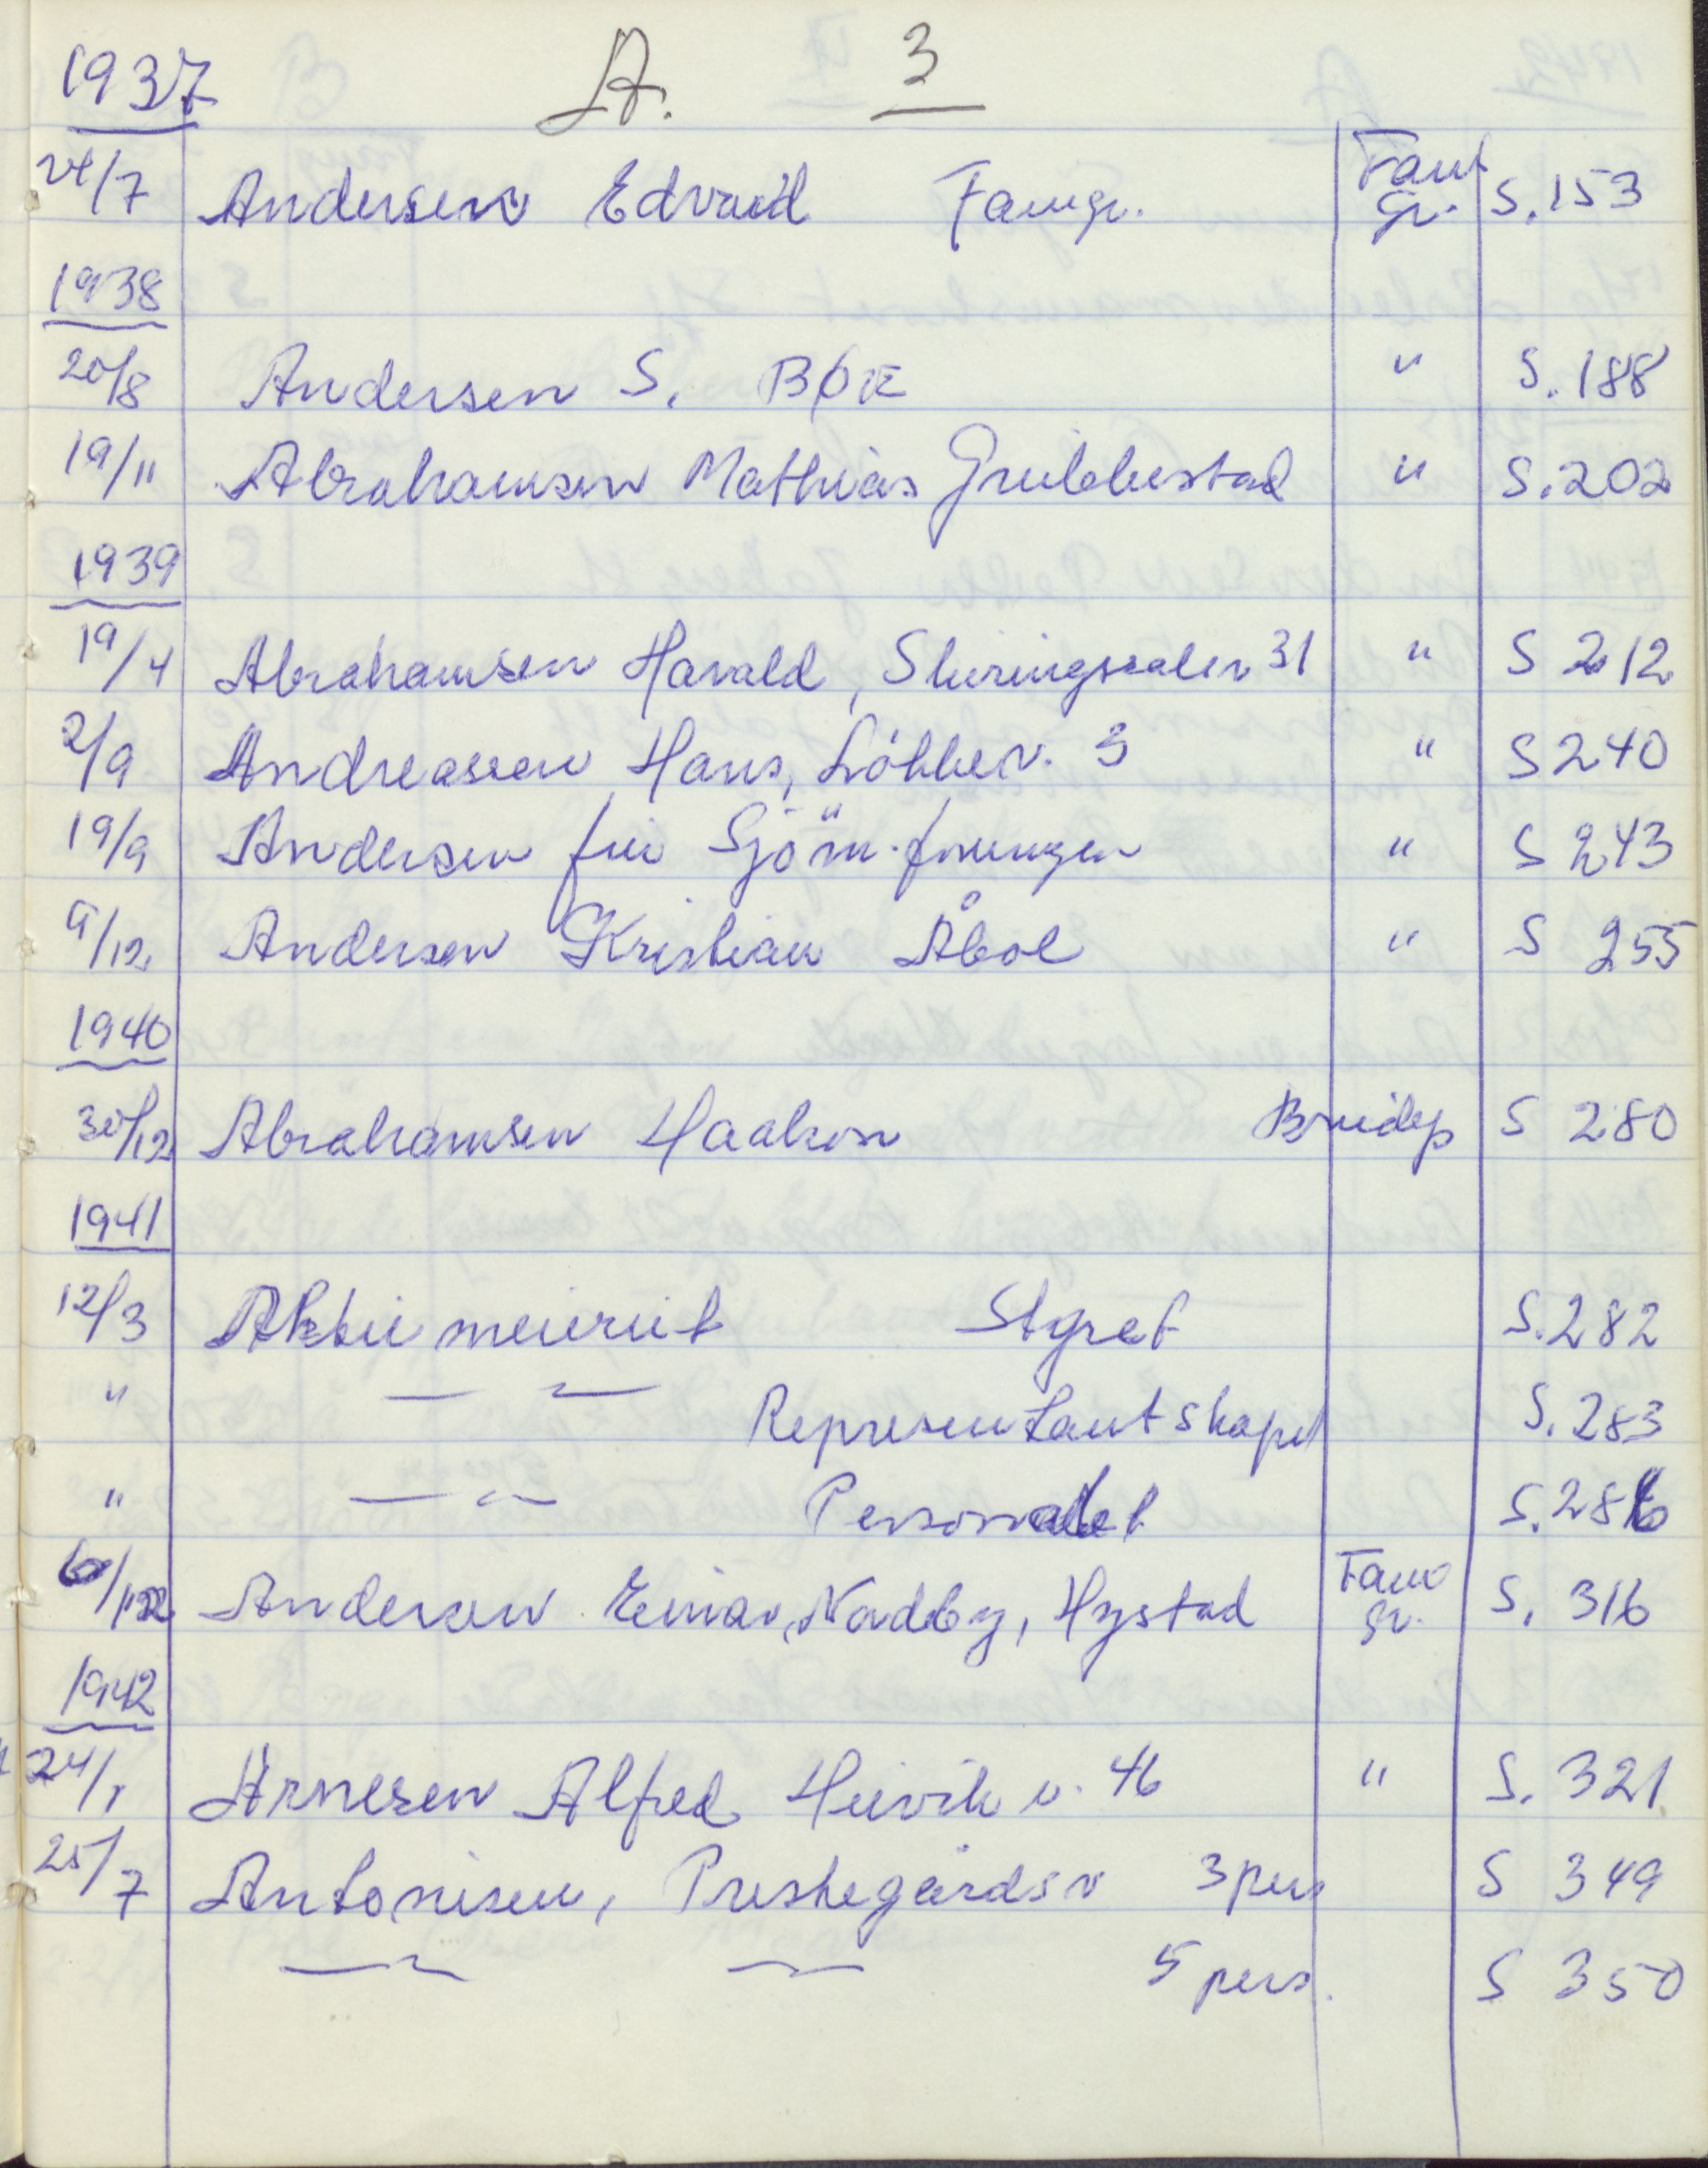 1937 A. 3
24/7 Andersen Edvard Famgr. Fam gr. S. 153
1938
20/8 Andersen S. BØE " S. 188
19/11 Abrahamsen Mathias Grubbestad " S. 202
1939
19/4 Abrahamsen Harald, Skiringssalsv 31 " S 212
2/9 Andreassen Hans, Løkkev. 3 " S 240
19/9 Andersen fru Sjöm.foreningen " S 243
9/12 Andersen Kristian Åbol " S 255
1940
30/12 Abrahamsen Haakon Brudep S 280
1941
12/3 Aktiemeieriet Styret S. 282
" — " — Representantskapet S. 283
" — " — Personalet S. 286
6/12 Andersen Einar, Nordby, Hystad Fam gr. S. 316
1942
24/1 Arnesen Alfred Heivik v. 46 " S. 321
25/7 Antonisen, Prestegårdsv 3 pers S 349
— " — — " — 5 pers. S 350